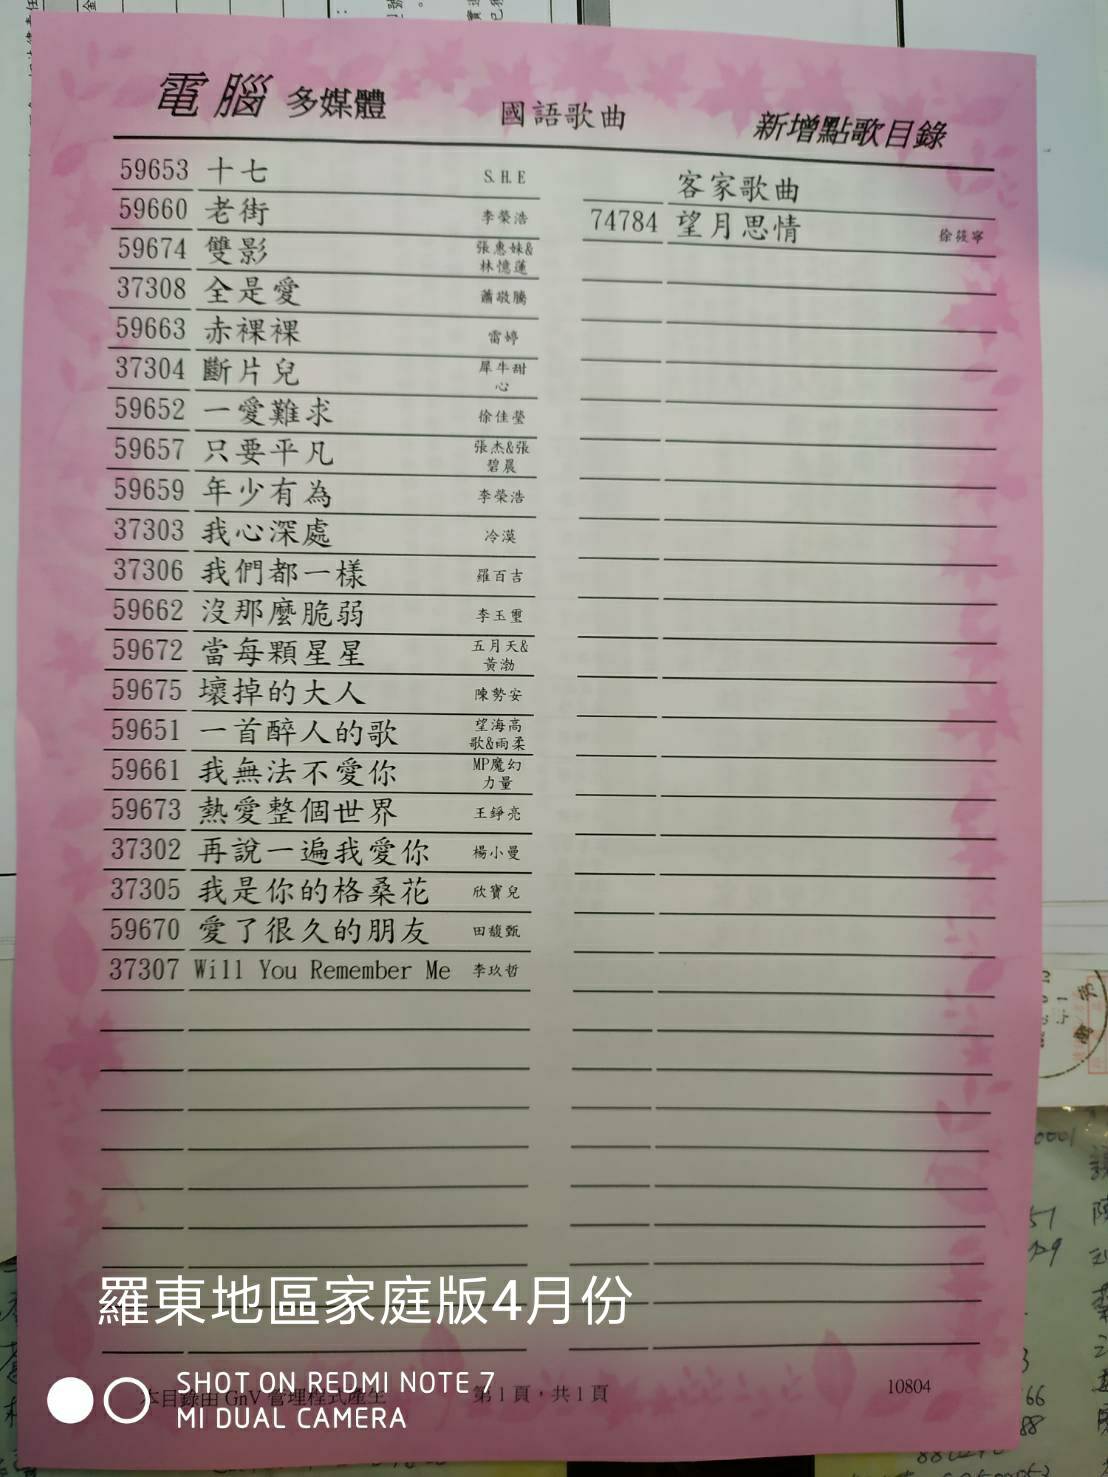 電腦 多媒體 國語歌曲 新增點歌目錄
59653 十七 S.H.E
59660 老街 李榮浩
59674 雙影 張惠妹&林憶蓮
37308 全是愛 蕭敬騰
59663 赤裸裸 雷婷
37304 斷片兒 犀牛甜心
59652 一愛難求 徐佳瑩
59657 只要平凡 張杰&張碧晨
59659 年少有為 李榮浩
37303 我心深處 冷漠
37306 我們都一樣 羅百吉
59662 沒那麼脆弱 李玉璽
59672 當每顆星星 五月天&黃渤
59675 壞掉的大人 陳勢安
59651 一首醉人的歌 望海高歌&雨柔
59661 我無法不愛你 MP魔幻力量
59673 熱愛整個世界 王錚亮
37302 再說一遍我愛你 楊小曼
37305 我是你的格桑花 欣寶兒
59670 愛了很久的朋友 田馥甄
37307 Will You Remember Me 李玖哲
客家歌曲
74784 望月思情 徐筱寧
羅東地區家庭版4月份
SHOT ON REDMI NOTE 7
MI DUAL CAMERA
本目錄由 GnV 管理程式產生 第1頁，共1頁 10804